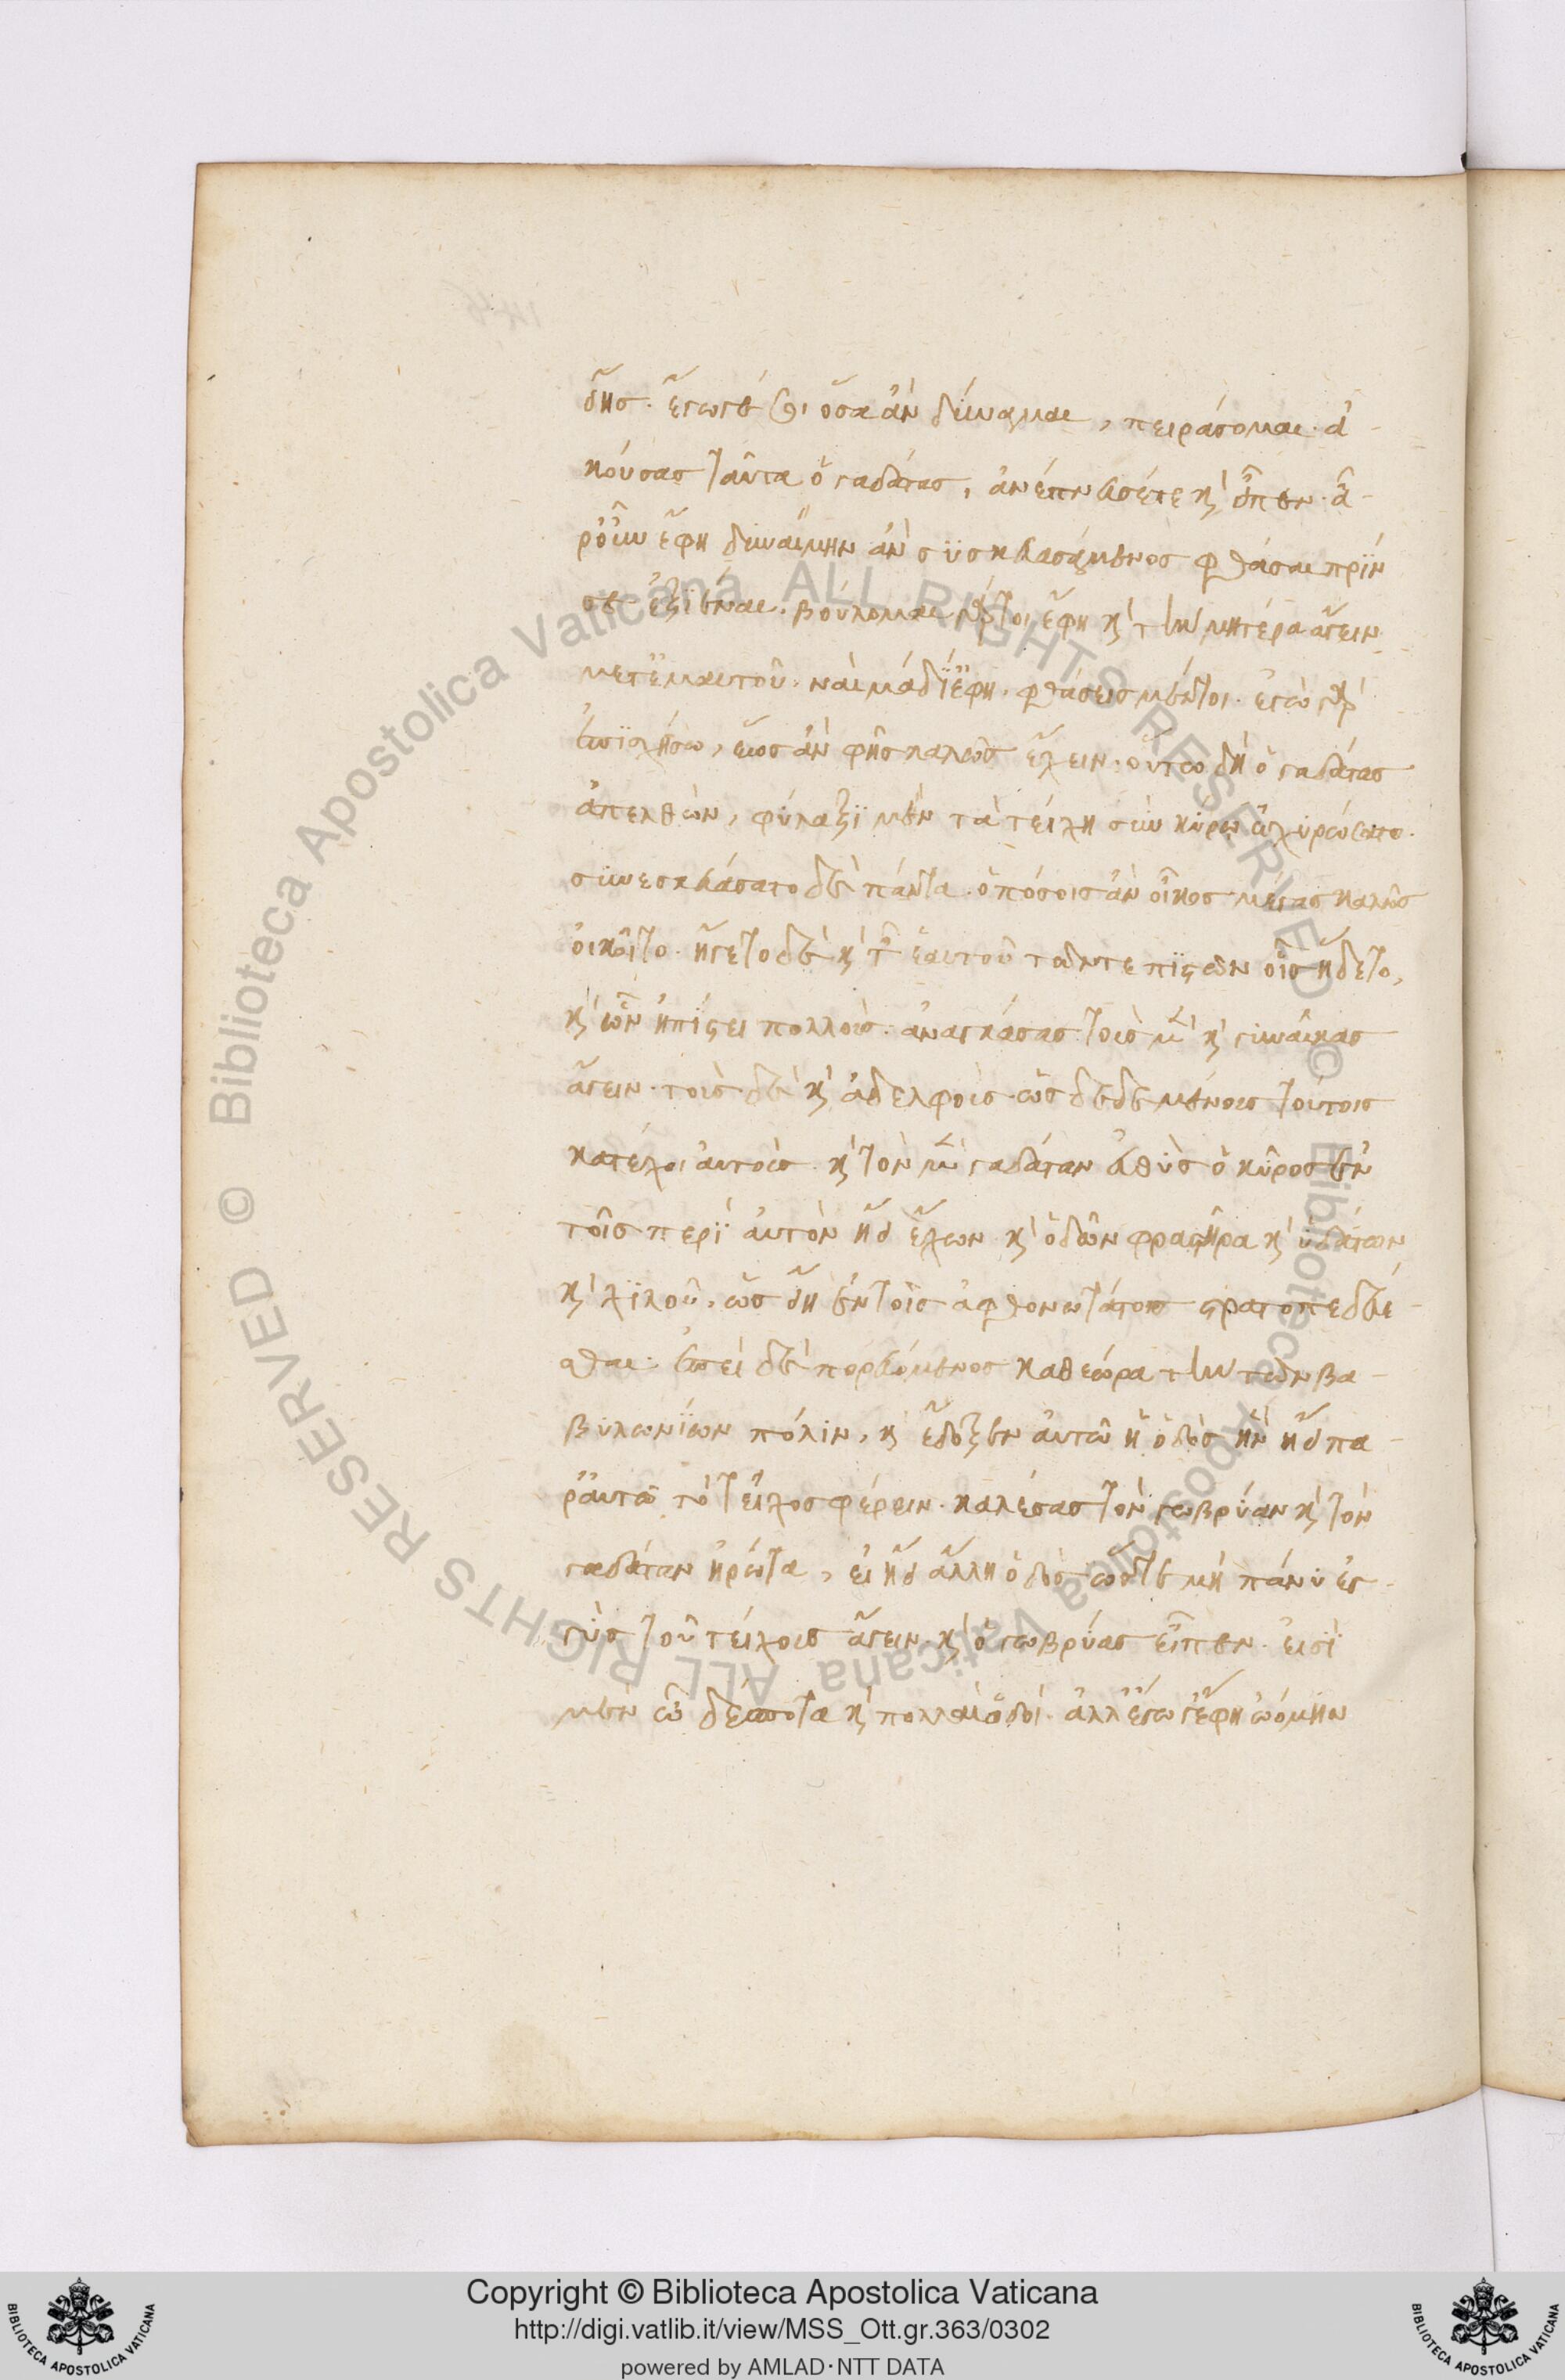 δῆς. ἔγωγέ σοι ὅσα ἂν δύνωμαι, πειράσομαι. ἀ-
κούσας ταῦτα ὁ γαδάτας, ἀνέπνευσέ τε καὶ εἶπεν. ἆ-
ρ' οὖν ἔφη δυναίμην ἂν συσκευασάμενος φθάσαι πρὶν
σε ἐξιέναι. βούλομαι γάρ τοι ἔφη καὶ τὴν μητέρα ἄγειν
μετ' ἐμαυτοῦ. ναὶ μὰ δί' ἔφη. φθάσεις μέντοι. ἐγὼ γὰρ
ἐπισχήσω, ἕως ἂν φῇς καλῶς ἔχειν. οὕτω δὴ ὁ γαδάτας
ἀπελθὼν, φύλαξι μὲν τὰ τείχη σὺν κύρω ὠχυρώσατο.
συνεσκευάσατο δὲ πάντα. ὁπόσοις ἂν οἶκος μέγας καλῶς
οἰκοῖτο. ἤγετο δὲ καὶ τῶν ἑαυτοῦ τῶν τε πιστῶν οἷς ἥδετο,
καὶ ὧν ἠπίστει πολλοὺς. ἀναγκάσας τοὺς μὲν καὶ γυναῖκας
ἄγειν. τοὺς δὲ καὶ ἀδελφοὺς. ὡς δεδεμένους τούτοις
κατέχοι αὐτοὺς. καὶ τὸν μὲν γαδάταν εὐθὺς ὁ κῦρος ἐν
τοῖς περὶ αὐτὸν ᾔει ἔχων καὶ ὁδῶν φραστῆρα καὶ ὑδάτων
καὶ χιλοῦ, ὡς εἴη ἐν τοῖς ἀφθονωτάτοις στρατοπεδεύε-
σθαι. ἐπεὶ δὲ πορευόμενος καθεώρα τὴν τῶν βα-
βυλωνίων πόλιν, καὶ ἔδοξεν αὐτῶ ἡ ὁδὸς ἣν ᾔει πα-
ρ' αὐτὸ τὸ τεῖχος φέρειν. καλέσας τὸν γωβρύαν καὶ τὸν
γαδάταν ἠρώτα, εἰ εἴη ἄλλη ὁδὸς ὥστε μὴ πάνυ ἐγ-
γὺς τοῦ τείχους ἄγειν. καὶ ὁ γωβρύας εἶπεν. εἰσὶ
μὲν ὦ δέσποτα καὶ πολλαὶ ὁδοί. ἀλλ' ἔγωγ' ἔφη ᾠόμην